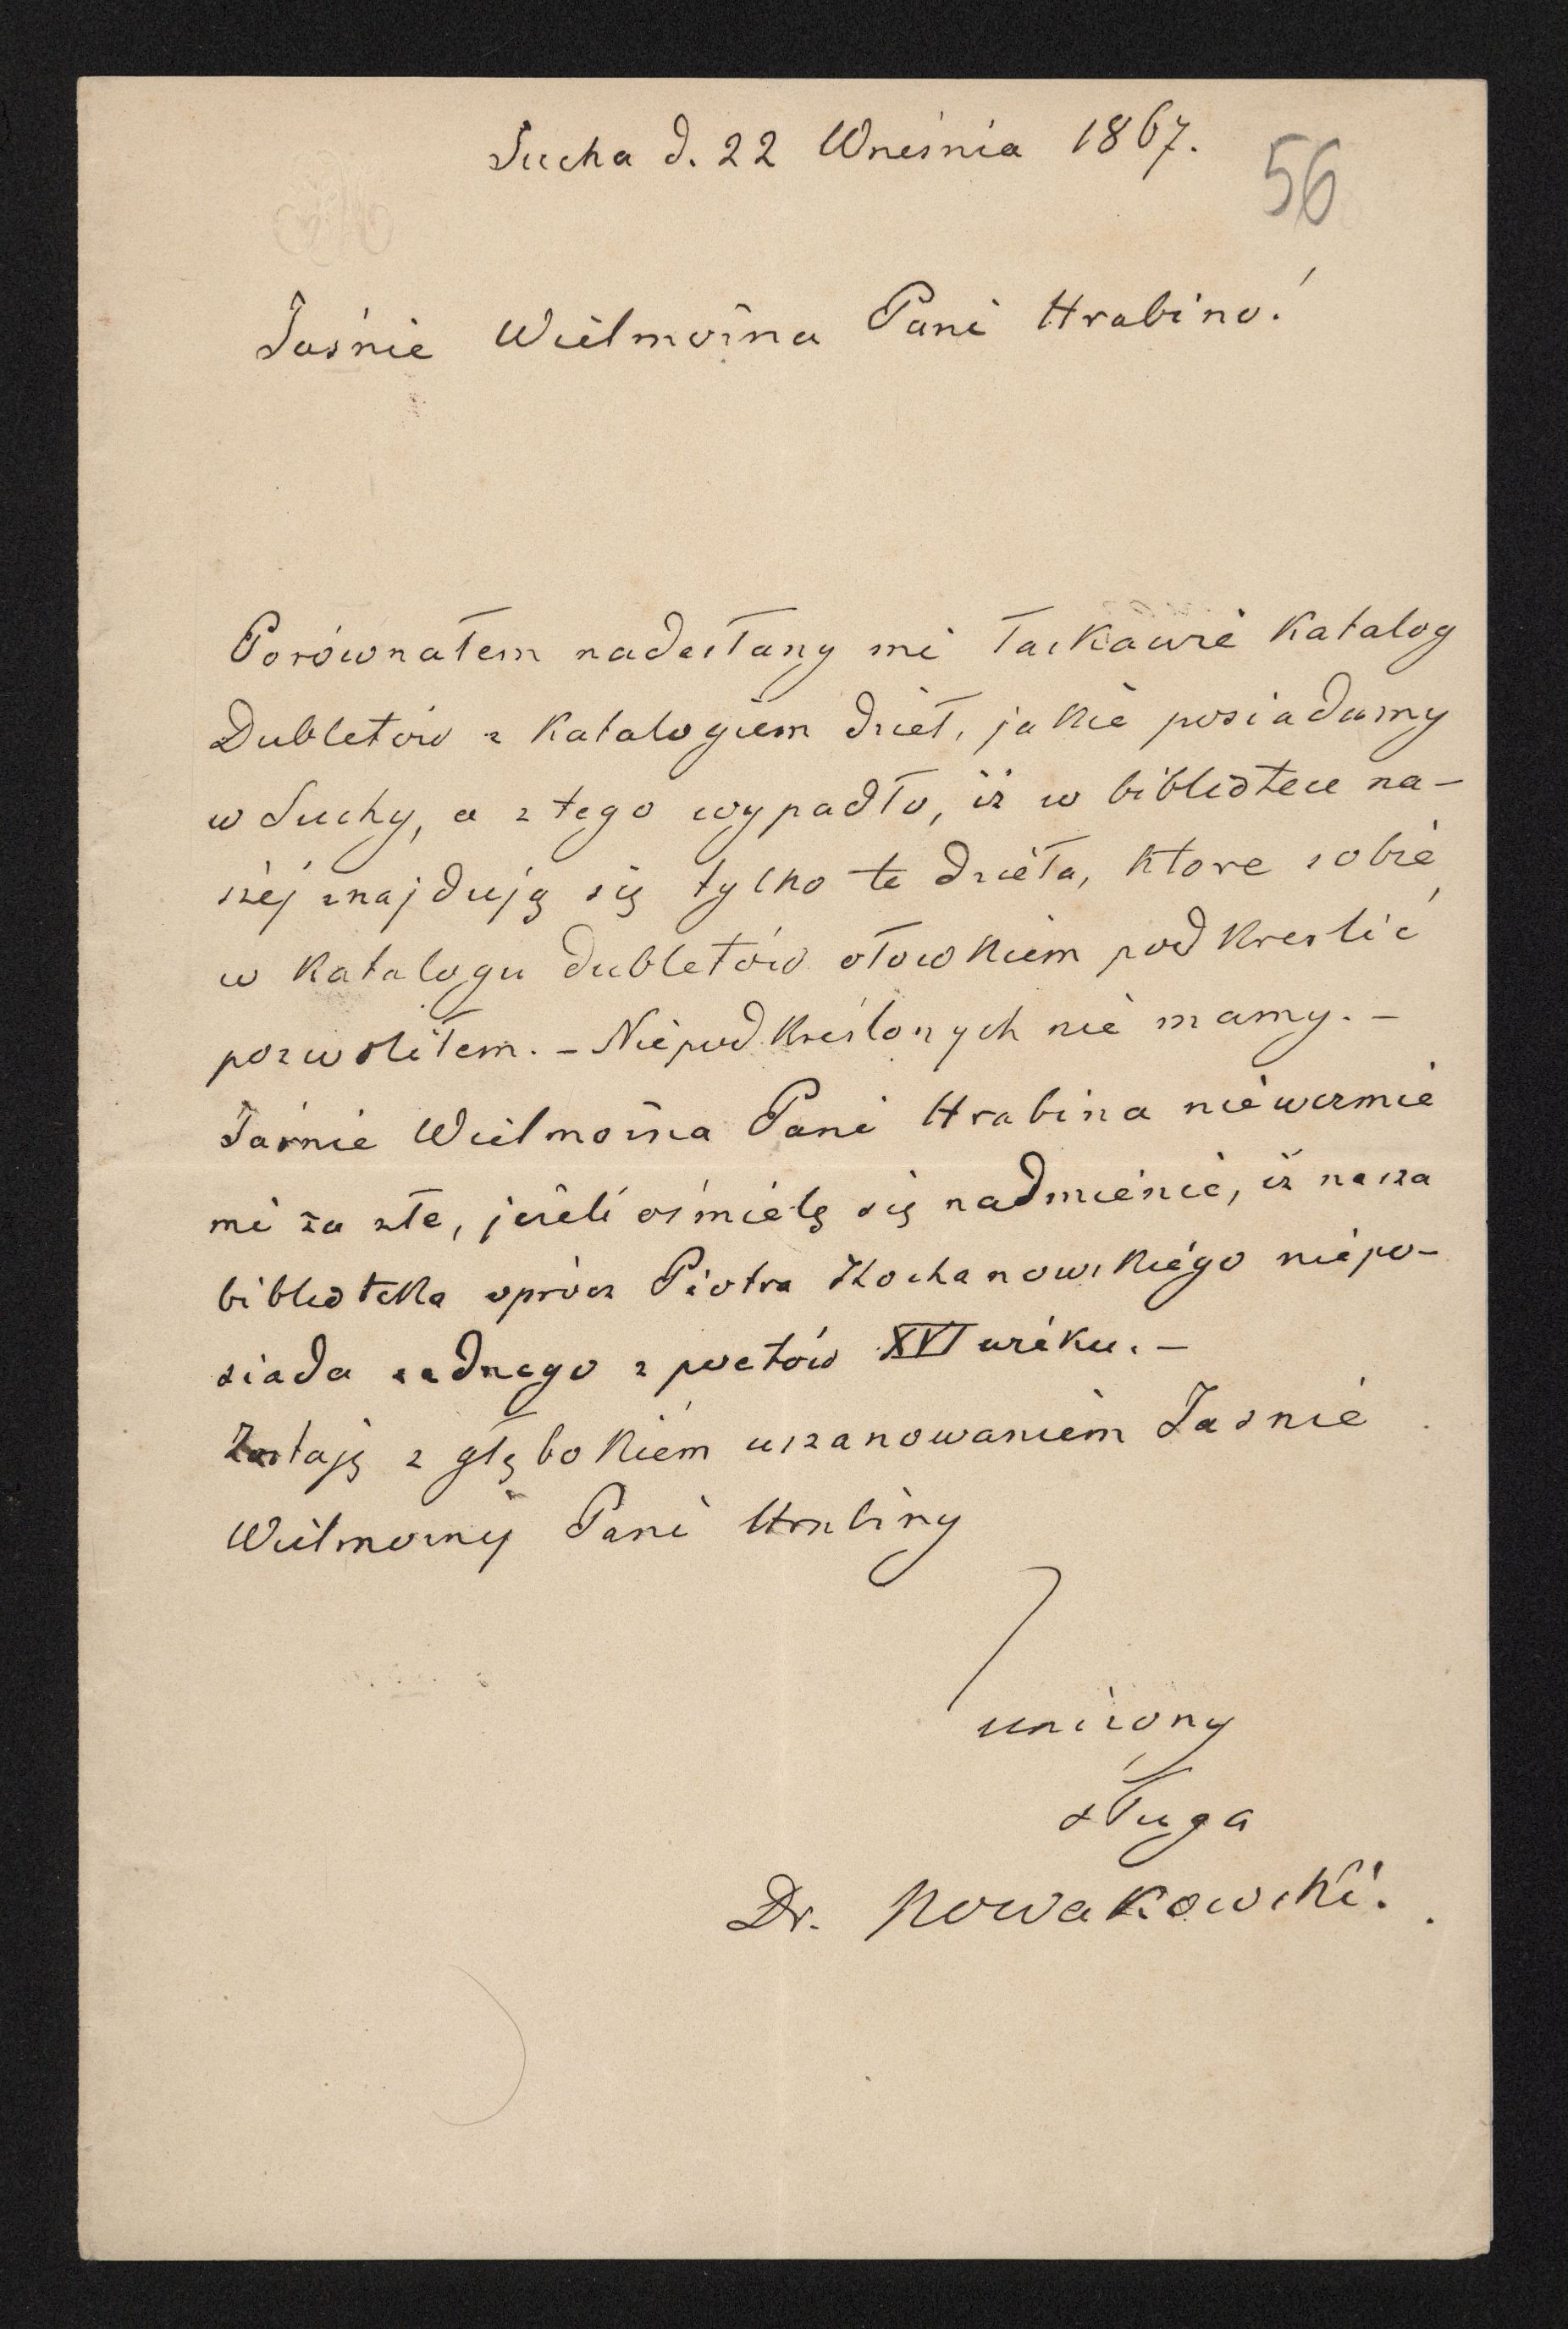 Sucha d. 22 Września 1867.
56
Jaśnie Wielmożna Pani Hrabino!
Porównałem nadesłany mi łaskawie Katalog
Dubletów z Katalogiem dzieł, jakie posiadamy
w Suchy, a z tego wypadło, iż w bibliotece na-
szej znajdują się tylko te dzieła, ktore sobie
w Katalogu dubletów ołowkiem podkreslić
pozwoliłem. – Niepodkreślonych nie mamy. –
Jaśnie Wielmożna Pani Hrabina niewezmie
mi za złe, jeżeli ośmielę się nadmienić, iż nasza
biblioteka oprócz Piotra Kochanowskiego niepo-
siada żadnego z poetów XVI wieku. –
Zostaję z głębokiem uszanowaniem Jasnie
Wielmożnej Pani Hrabiny
uniżony
sługa
Dr. Nowakowski.